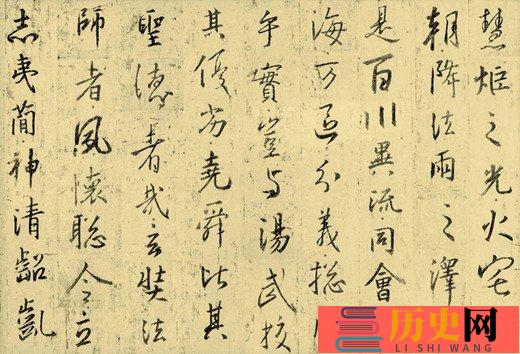 慧炬之光火宅
朝降法雨之澤
是百川異流同會
海万區分義揔
乎實豈与湯武挍
其優劣堯舜比其
聖德者哉玄奘法
師者夙懷聡令立
志夷蕳神清齠齔
历史网
LI SHI WANG